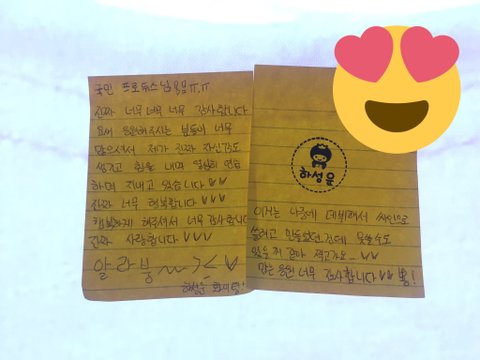 국민 프로듀스님들ㅠ.ㅠ
진짜 너무 너무 너무 감사합니다
요새 응원해주시는 분들이 너무
많으셔서 제가 진짜 자신감도
생기고 힘을 내며 열심히 연습
하며 지내고 있습니다♥♥
진짜 너무 행복합니다♥♥♥
행복하게 해주셔서 너무 감사합니다
진짜 사랑합니다 ♥♥♥
알라붕~~ >.< ♥
하성운 화이팅!
하성운
이거는 나중에 데뷔해서 싸인으로
쓸려고 만들었던건데 못쓸수도
있을거 같아 찍고가요..♥♥
많은 응원 너무 감사합니다♥♥ 뿅!